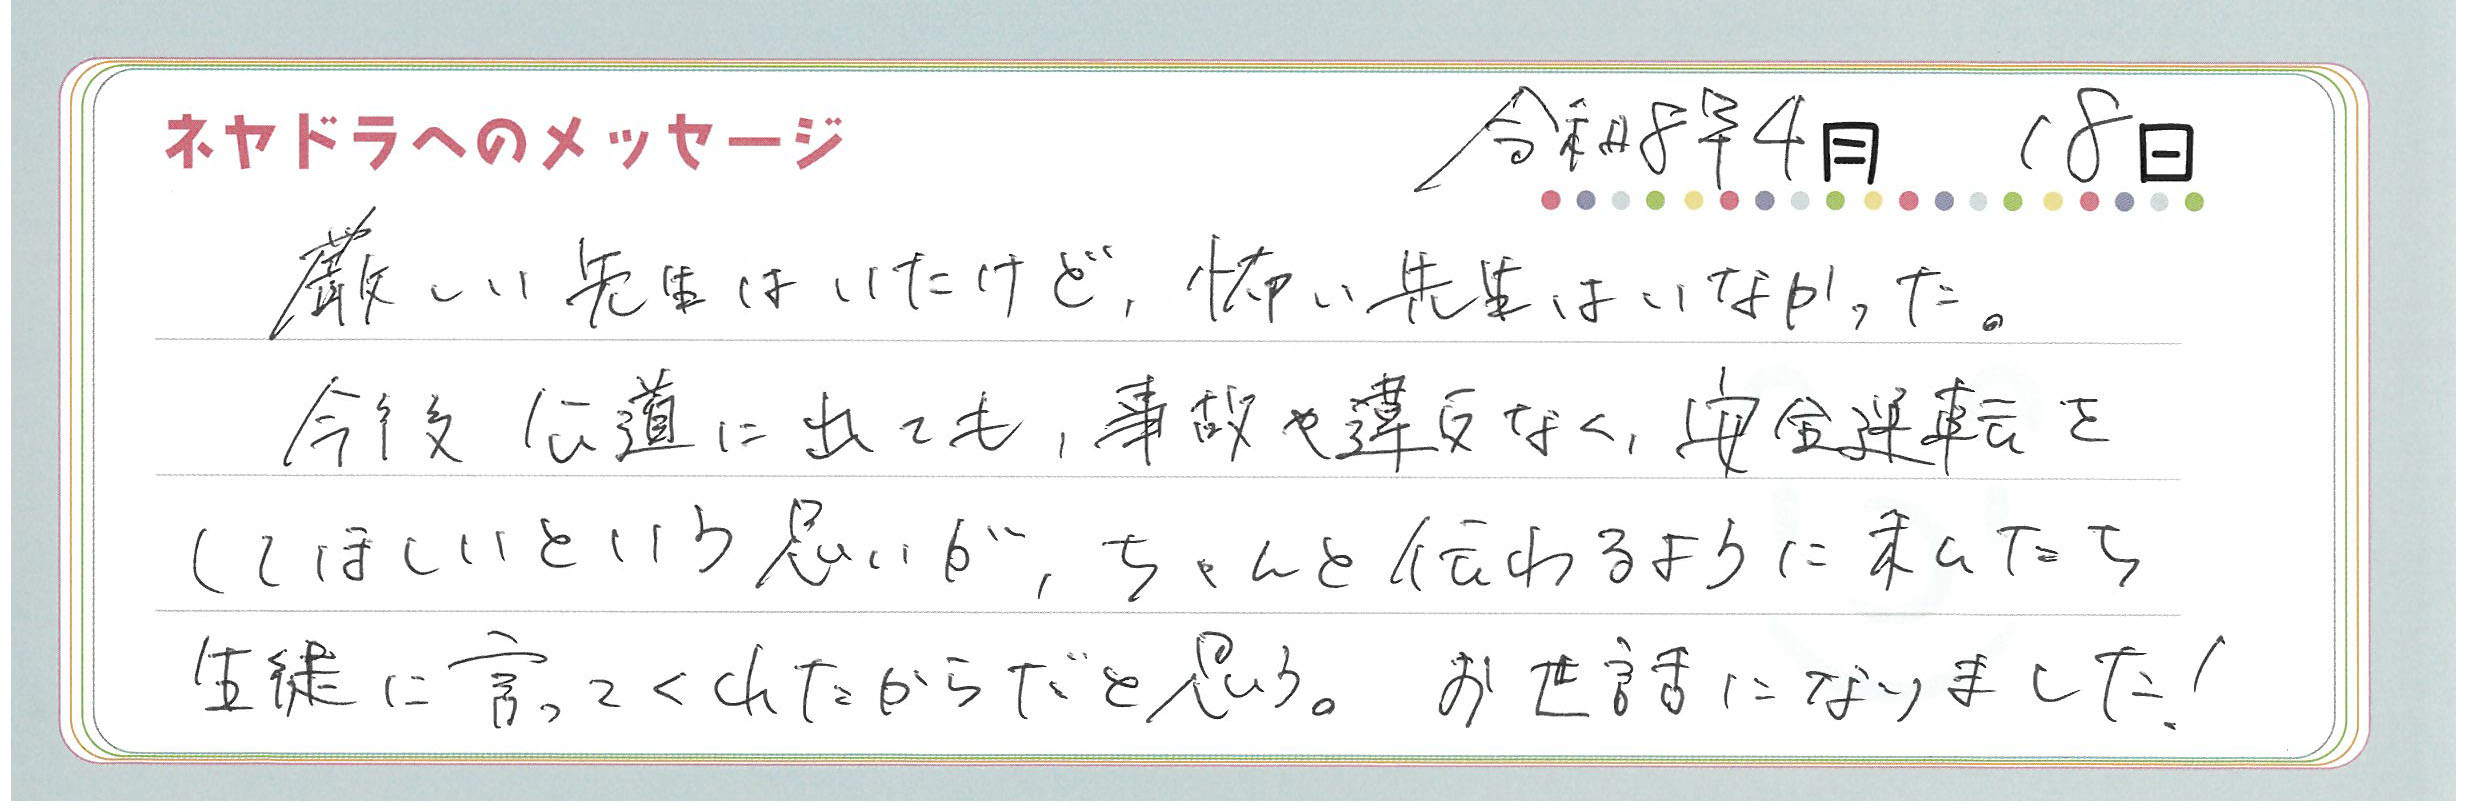 ネヤドラへのメッセージ
令和8年4月 18日
厳しい先生はいたけど,怖い先生はいなかった。
今後 公道に出ても,事故や違反なく,安全運転を
してほしいという思いが,ちゃんと伝わるように私たち
生徒に言ってくれたからだと思う。 お世話になりました!